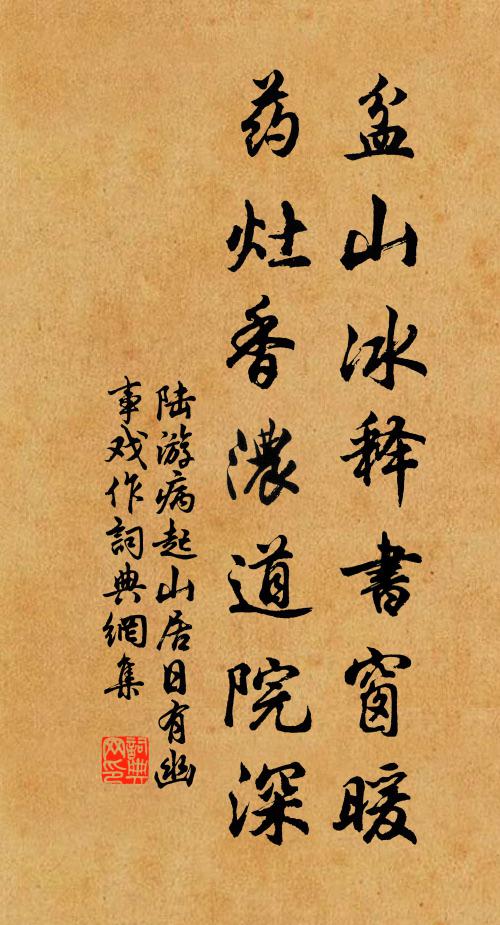 盆山冰释書窗暖
药灶香濃道院深
陆游病起山居日有幽
事戏作詞典網集
詞典
网印